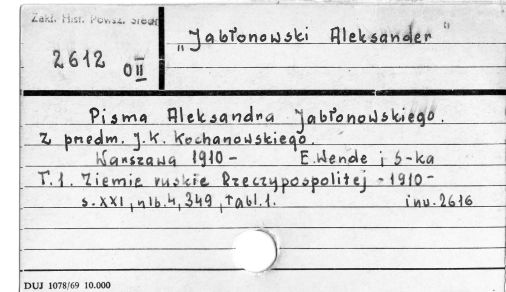 Zakł. Hist. Powsz. Średn
2612 O II
„Jabłonowski Aleksander"
Pisma Aleksandra Jabłonowskiego.
Z przedm. J.K. Kochanowskiego.
Warszawa 1910 - E. Wende i S-ka
T.1. Ziemie ruskie Rzeczypospolitej - 1910 -
s. XXI, nlb. 4, 349, tabl. 1. inv. 2616
DUJ 1078/69 10.000